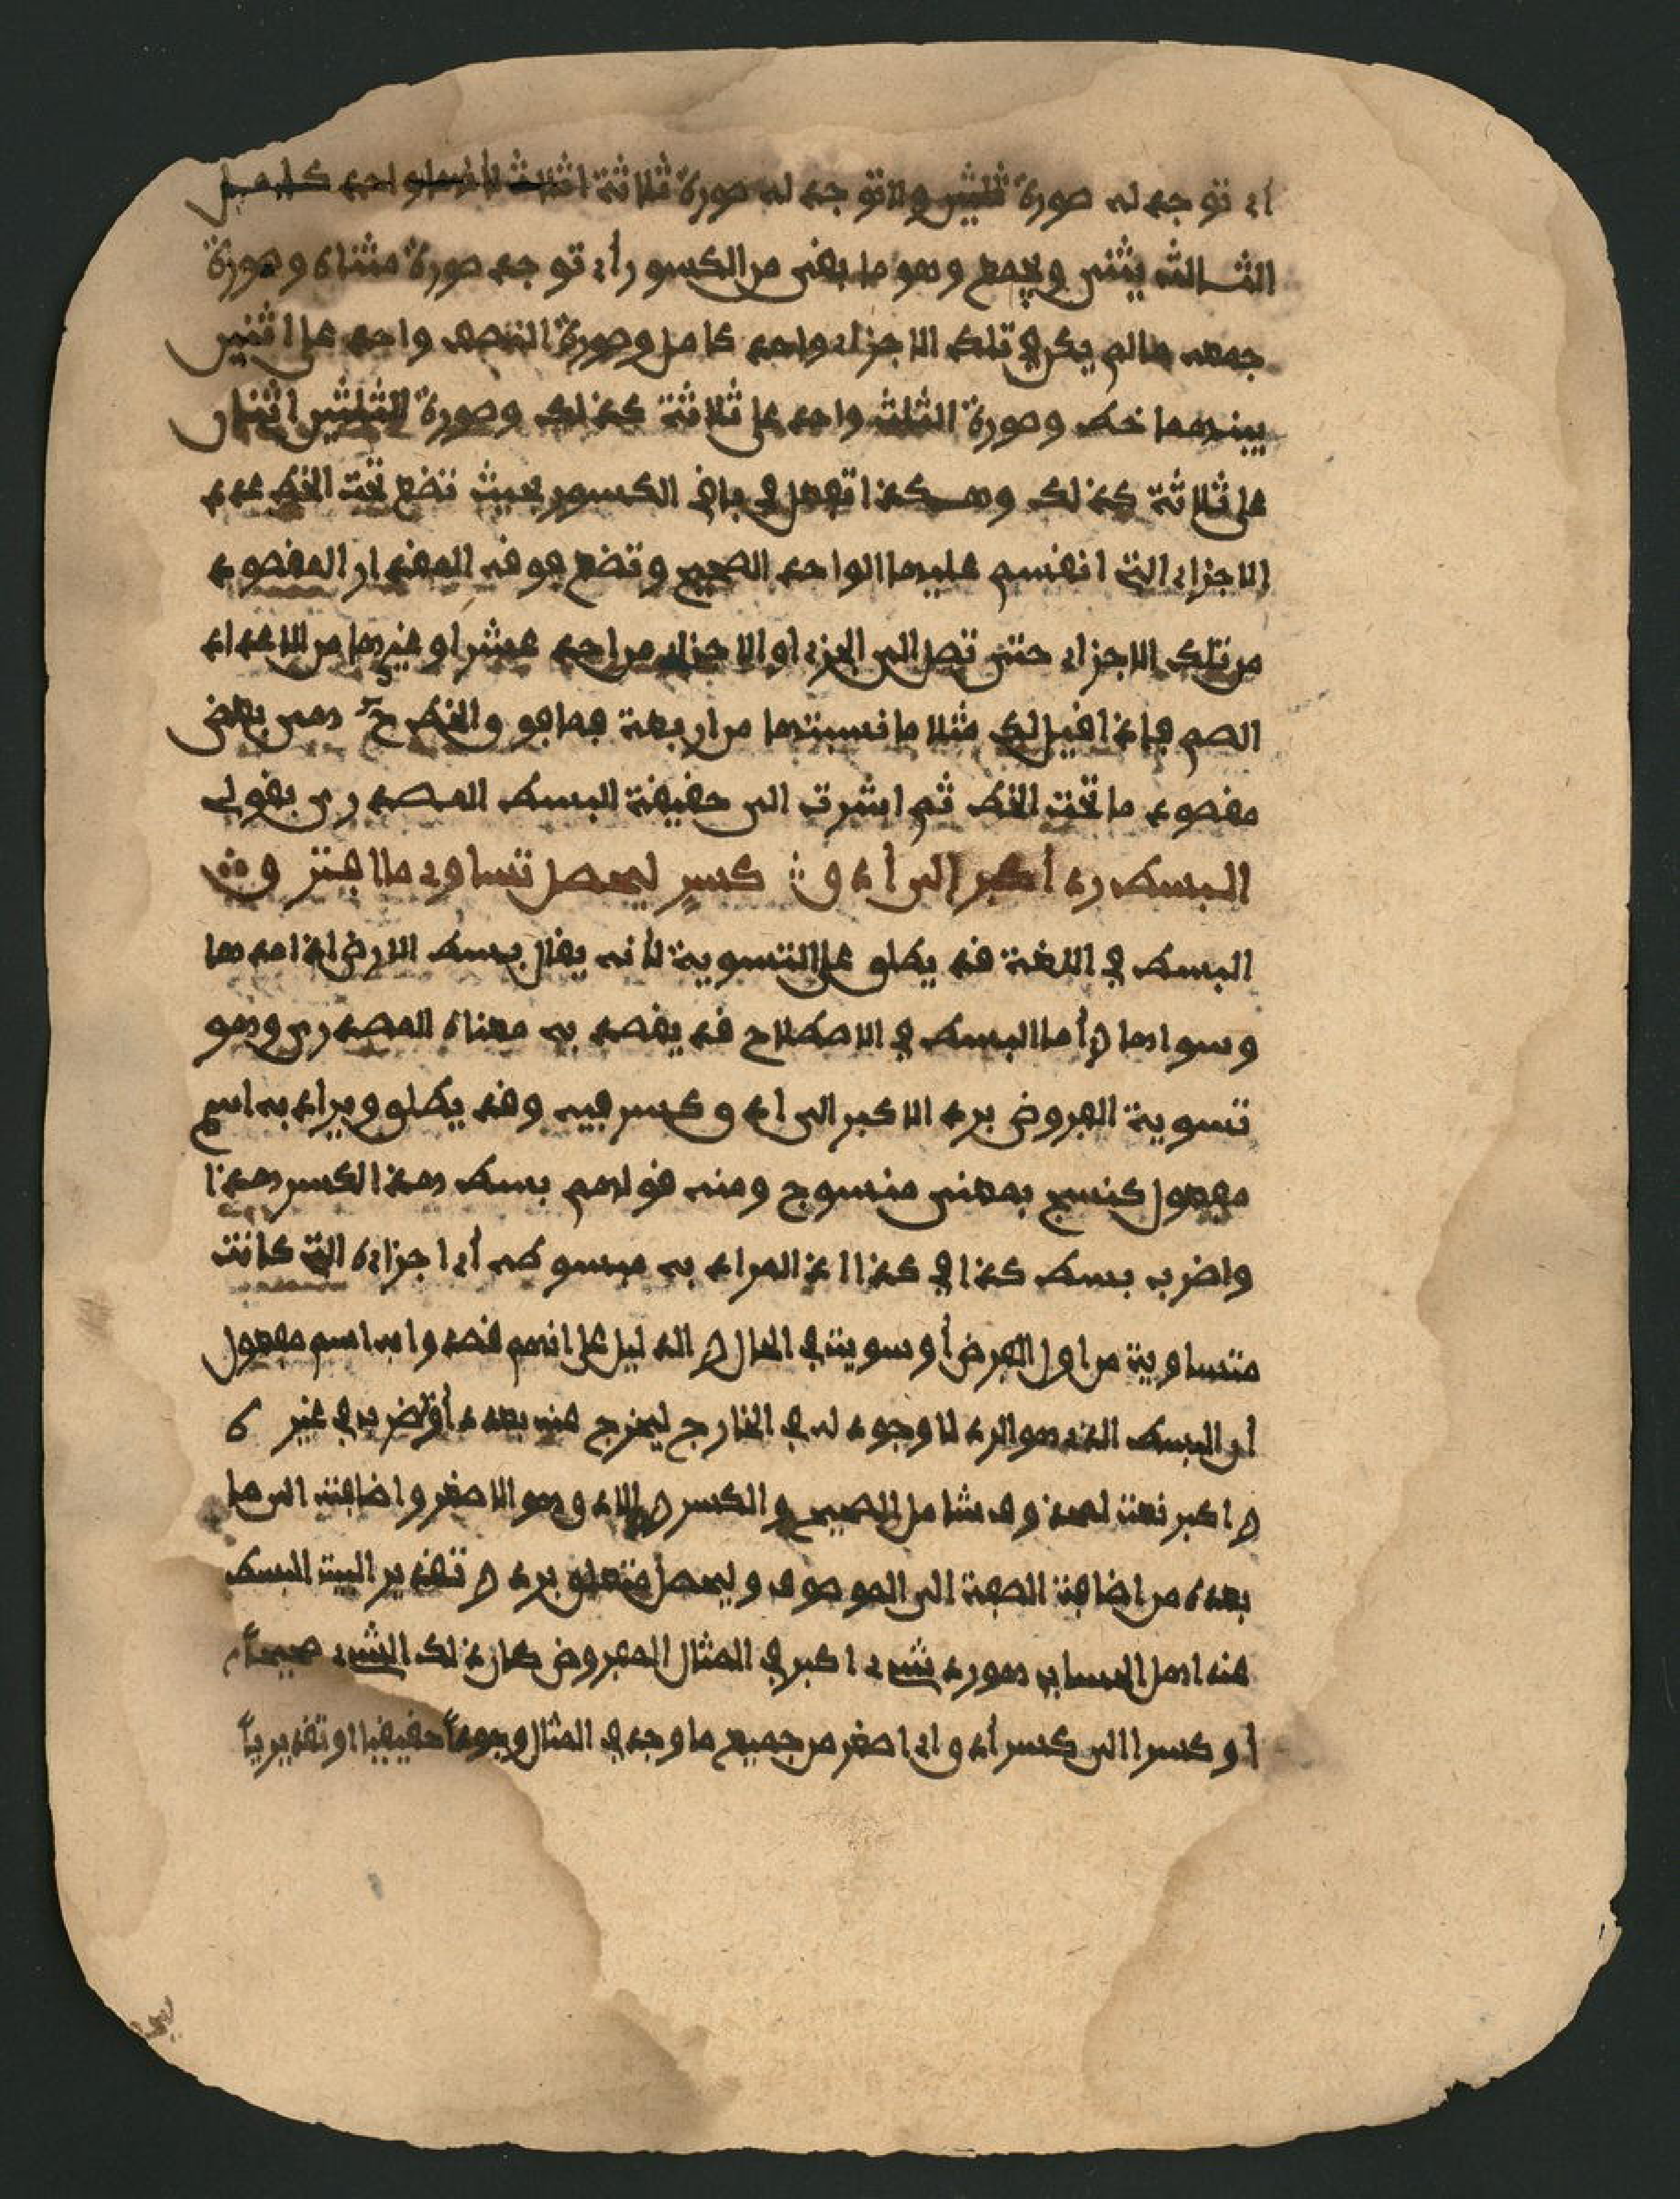 أي توجد له صورة ثلثين ولا توجد له صورة ثلاثة اثلاث لأنها واحد كامل
الثالث يثنى ويجمع وهو ما بقى من الكسور أي توجد صورة مثناه وصورة
جمعه مالم يكن في تلك الاجزاء واحد كامل وصورة النصف واحد على اثنين
بينهما خط وصورة الثلث واحد على ثلاثة كذلك وصورة الثلثين اثنان
على ثلاثة كذلك وهكذا تفعل في باقي الكسور بحيث تضع تحت الخط عدد
الاجزاء التي انقسم عليها الواحد الصحيح وتضع فوقه المقدار المقصود
من تلك الاجزاء حتى تصل الى الجزء او الاجزاء من احد عشر او غيرها من الاعداد
الصم فإذا قيل لك مثلا ما نسبتها من اربعة فما فوق الخط ح هى بعض
مقصود ما تحت الخط ثم اشرت الى حقيقة البسط المصدري بقولي
البسط رد أكبر إلى أدون كسر ليحصل تساوي ما افترق
البسط في اللغة قد يطلق على التسوية لأنه يقال بسط الارض اذا مدها
وسواها أما البسط في الاصطلاح قد يقصد به معناه المصدري وهو
تسوية المفروض برد الاكبر الى ادون كسر فيه وقد يطلق ويراد به اسم
مفعول كنسج بمعنى منسوج ومنه قولهم بسط هذا الكسر هذا
واضرب بسط كذا في كذا اذ المراد به مبسوطه أي اجزاءه التي كانت
متساوية من اول الفرض أو سويت في الحال الدليل على انهم قصدوا به اسم مفعول
أن البسط الذي هو الرد لا وجود له في الخارج ليخرج عنه بعدد أو تضربه في غيره
اكبر نعت لمحذوف شامل للصحيح والكسر الادون هو الاصغر واضافته الى ما
بعده من اضافة الصفة الى الموصوف وليحصل متعلق برد تقدير البيت البسط
عند اهل الحساب هو رد شيء اكبر في المثال المفروض كان ذلك الشيء صحيحاً
أو كسرا الى كسر أدون اي اصغر من جميع ما وجد في المثال وجوداً حقيقيا او تقديرياً